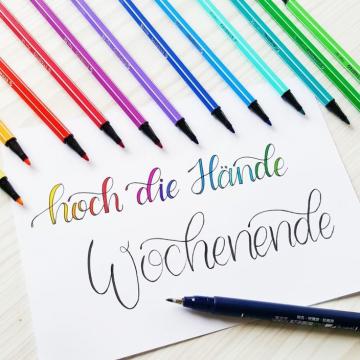 hoch die Hände
Wochenende